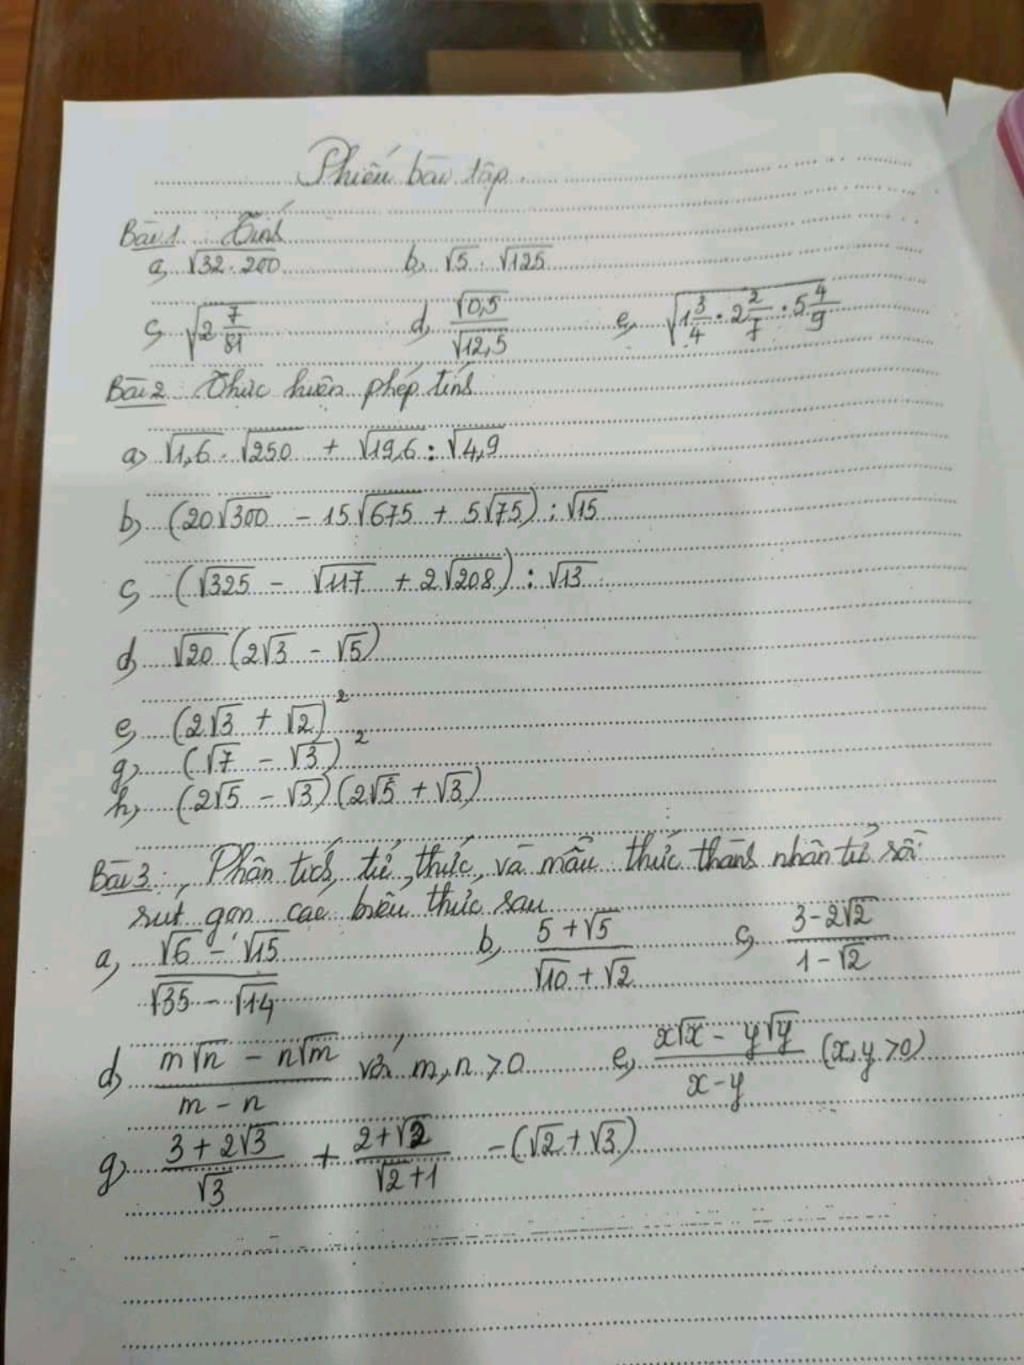 Phiếu bài tập
Bài 1 Tính
a, √(32·200) b, √5 · √125
c, √(2 7/81) d, √0,5/√12,5 e, √(1 3/4 · 2 2/7 : 5 4/9)
Bài 2 Thực hiện phép tính
a) √1,6 · √250 + √19,6 : √4,9
b) (20√300 - 15√675 + 5√75) : √15
c, (√325 - √117 + 2√208) : √13
d, √20 (2√3 - √5)
e, (2√3 + √2)²
g) (√7 - √3)²
h, (2√5 - √3)(2√5 + √3)
Bài 3: Phân tích tử thức và mẫu thức thành nhân tử rồi
rút gọn các biểu thức sau
a, (√6 - √15)/(√35 - √14) b, (5 + √5)/(√10 + √2) c, (3 - 2√2)/(1 - √2)
d, (m√n - n√m)/(m - n) với m, n > 0 e, (x√x - y√y)/(x - y) (x, y > 0)
g) (3 + 2√3)/√3 + (2 + √2)/(√2 + 1) - (√2 + √3)